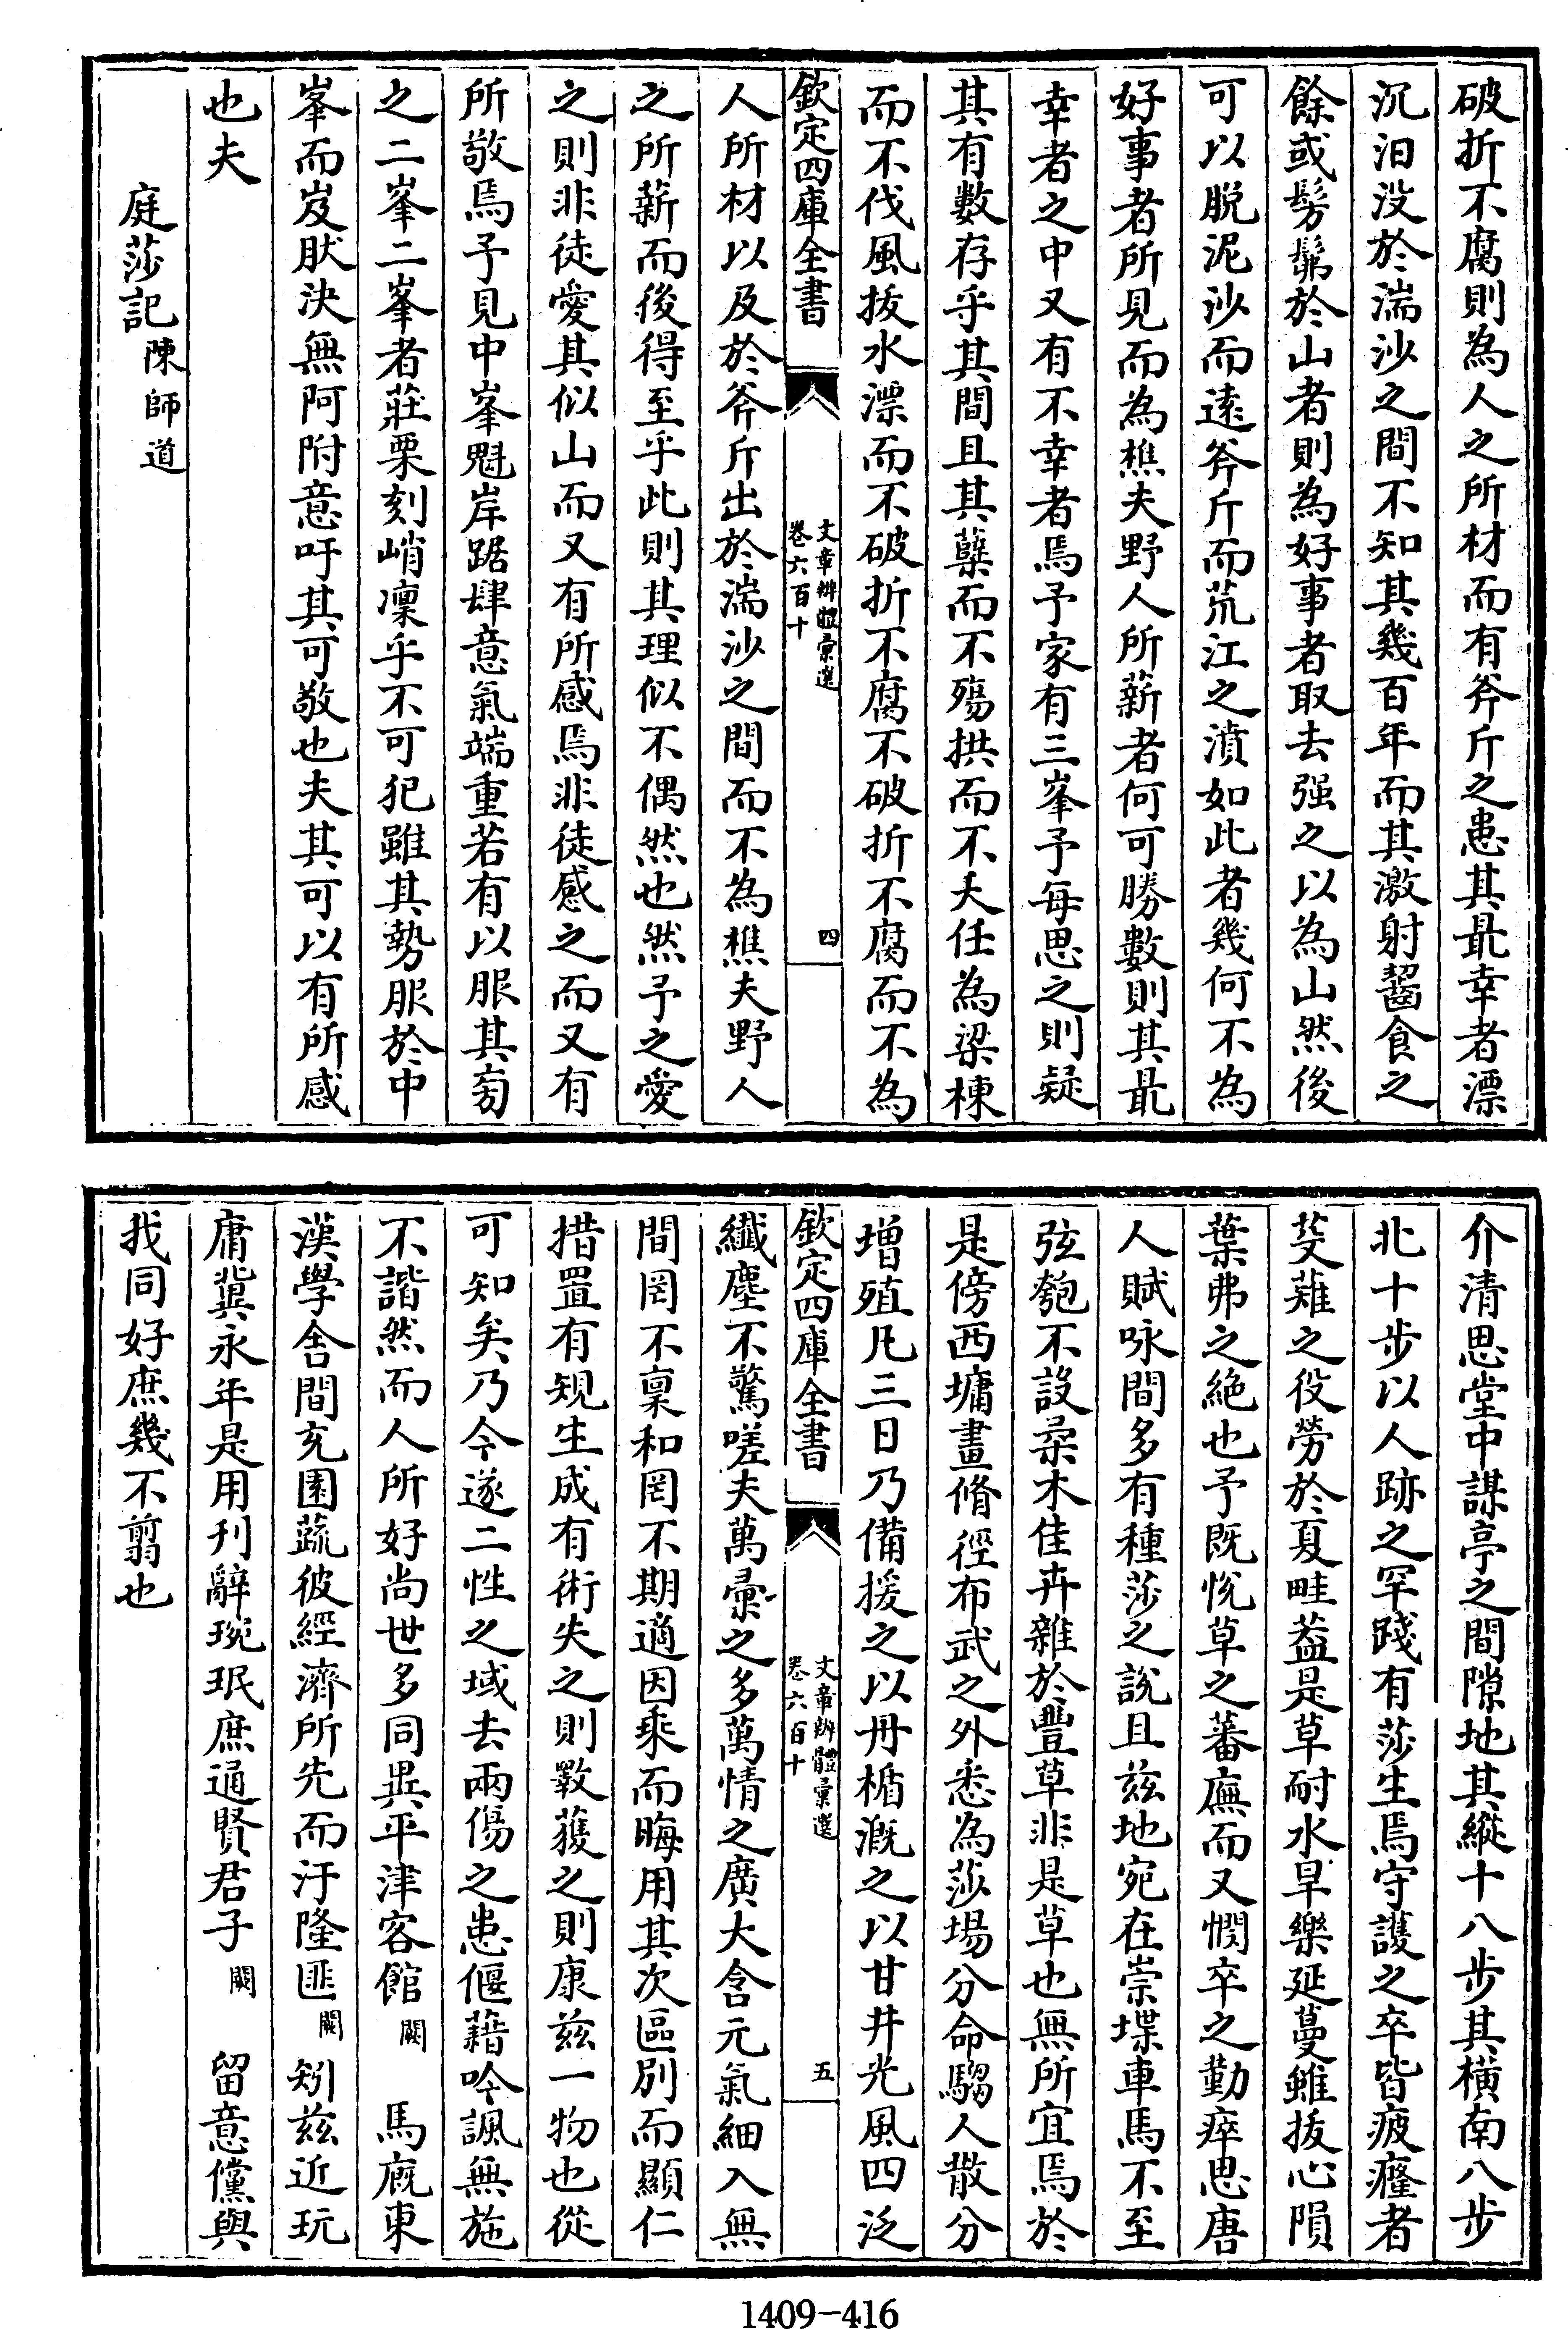 破折不腐則為人之所材而有斧斤之患其最幸者漂
沉汩没於湍沙之間不知其幾百年而其激射齧食之
餘或髣髴於山者則為好事者取去强之以為山然後
可以脱泥沙而逺斧斤而荒江之濆如此者幾何不為
好事者所見而為樵夫野人所薪者何可勝數則其最
幸者之中又有不幸者焉予家有三峯予每思之則疑
其有數存乎其間且其蘖而不殤拱而不夭任為梁棟
而不伐風拔水漂而不破折不腐不破折不腐而不為
欽定四庫全書
文章辨體彙選
卷六百十
四
人所材以及於斧斤出於湍沙之間而不為樵夫野人
之所薪而後得至乎此則其理似不偶然也然予之愛
之則非徒愛其似山而又有所感焉非徒感之而又有
所敬焉予見中峯魁岸踞肆意氣端重若有以服其旁
之二峯二峯者莊栗刻峭凜乎不可犯雖其勢服於中
峯而岌肰決無阿附意吁其可敬也夫其可以有所感
也夫
庭莎記陳師道
介清思堂中謀亭之間隙地其縱十八步其橫南八步
北十步以人跡之罕踐有莎生焉守護之卒皆疲癃者
芟薙之役勞於夏畦葢是草耐水旱樂延蔓雖拔心隕
葉弗之絶也予既悅草之蕃廡而又憫卒之勤瘁思唐
人賦咏間多有種莎之說且兹地宛在崇堞車馬不至
弦匏不設柔木佳卉雜於豐草非是草也無所宜焉於
是傍西墉畫脩徑布武之外悉為莎場分命騶人散分
增殖凡三日乃備援之以丹楯溉之以甘井光風四泛
欽定四庫全書
文章辨體彙選
卷六百十
五
纖塵不驚嗟夫萬彙之多萬情之廣大含元氣細入無
間罔不稟和罔不期適因乘而晦用其次區別而顯仁
措置有規生成有術失之則斁蒦之則康兹一物也從
可知矣乃今遂二性之域去兩傷之患偃藉吟諷無施
不諧然而人所好尚世多同異平津客館闕馬廐東
漢學舍間充園蔬彼經濟所先而汙隆匪闕矧兹近玩
庸冀永年是用刊辭琬珉庶通賢君子闕留意儻與
我同好庶幾不翦也
1409-416